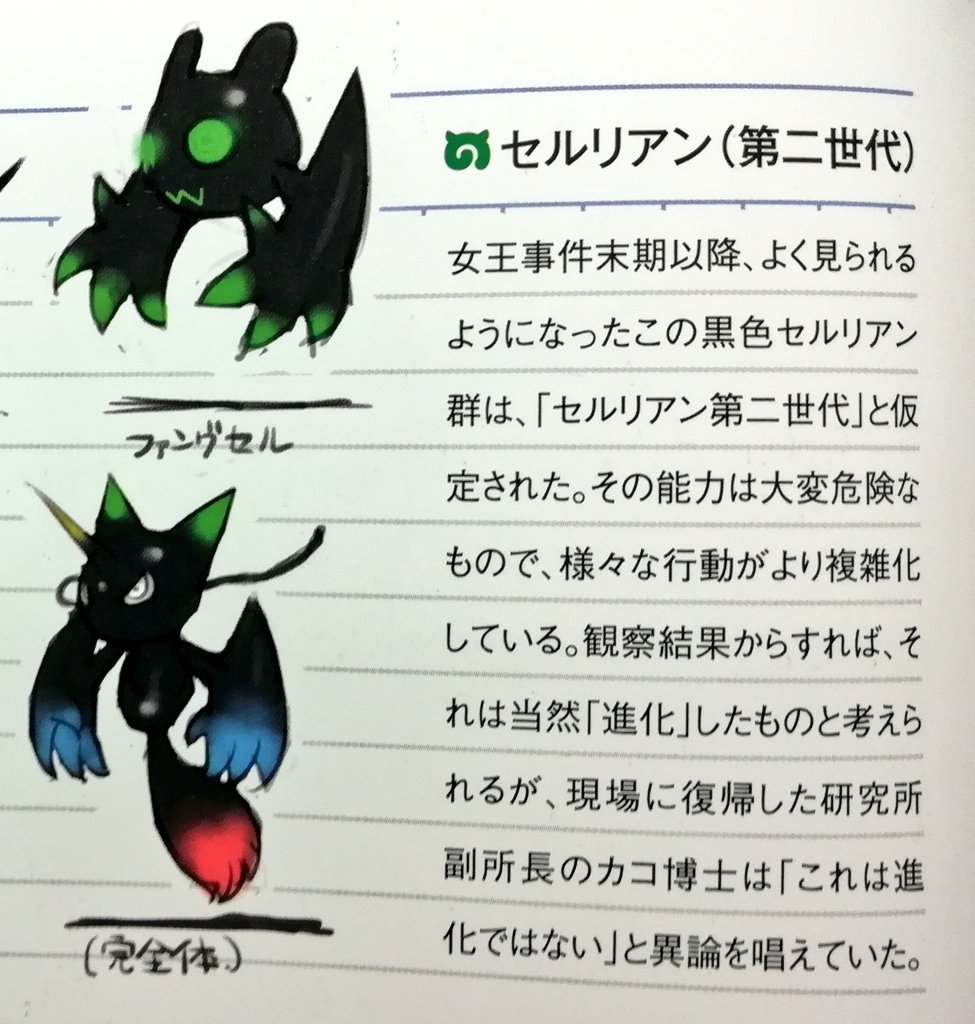 セルリアン(第二世代)
女王事件末期以降、よく見られる
ようになったこの黒色セルリアン
群は、「セルリアン第二世代」と仮
定された。その能力は大変危険な
もので、様々な行動がより複雑化
している。観察結果からすれば、そ
れは当然「進化」したものと考えら
れるが、現場に復帰した研究所
副所長のカコ博士は「これは進
化ではない」と異論を唱えていた。
ファングセル
(完全体)